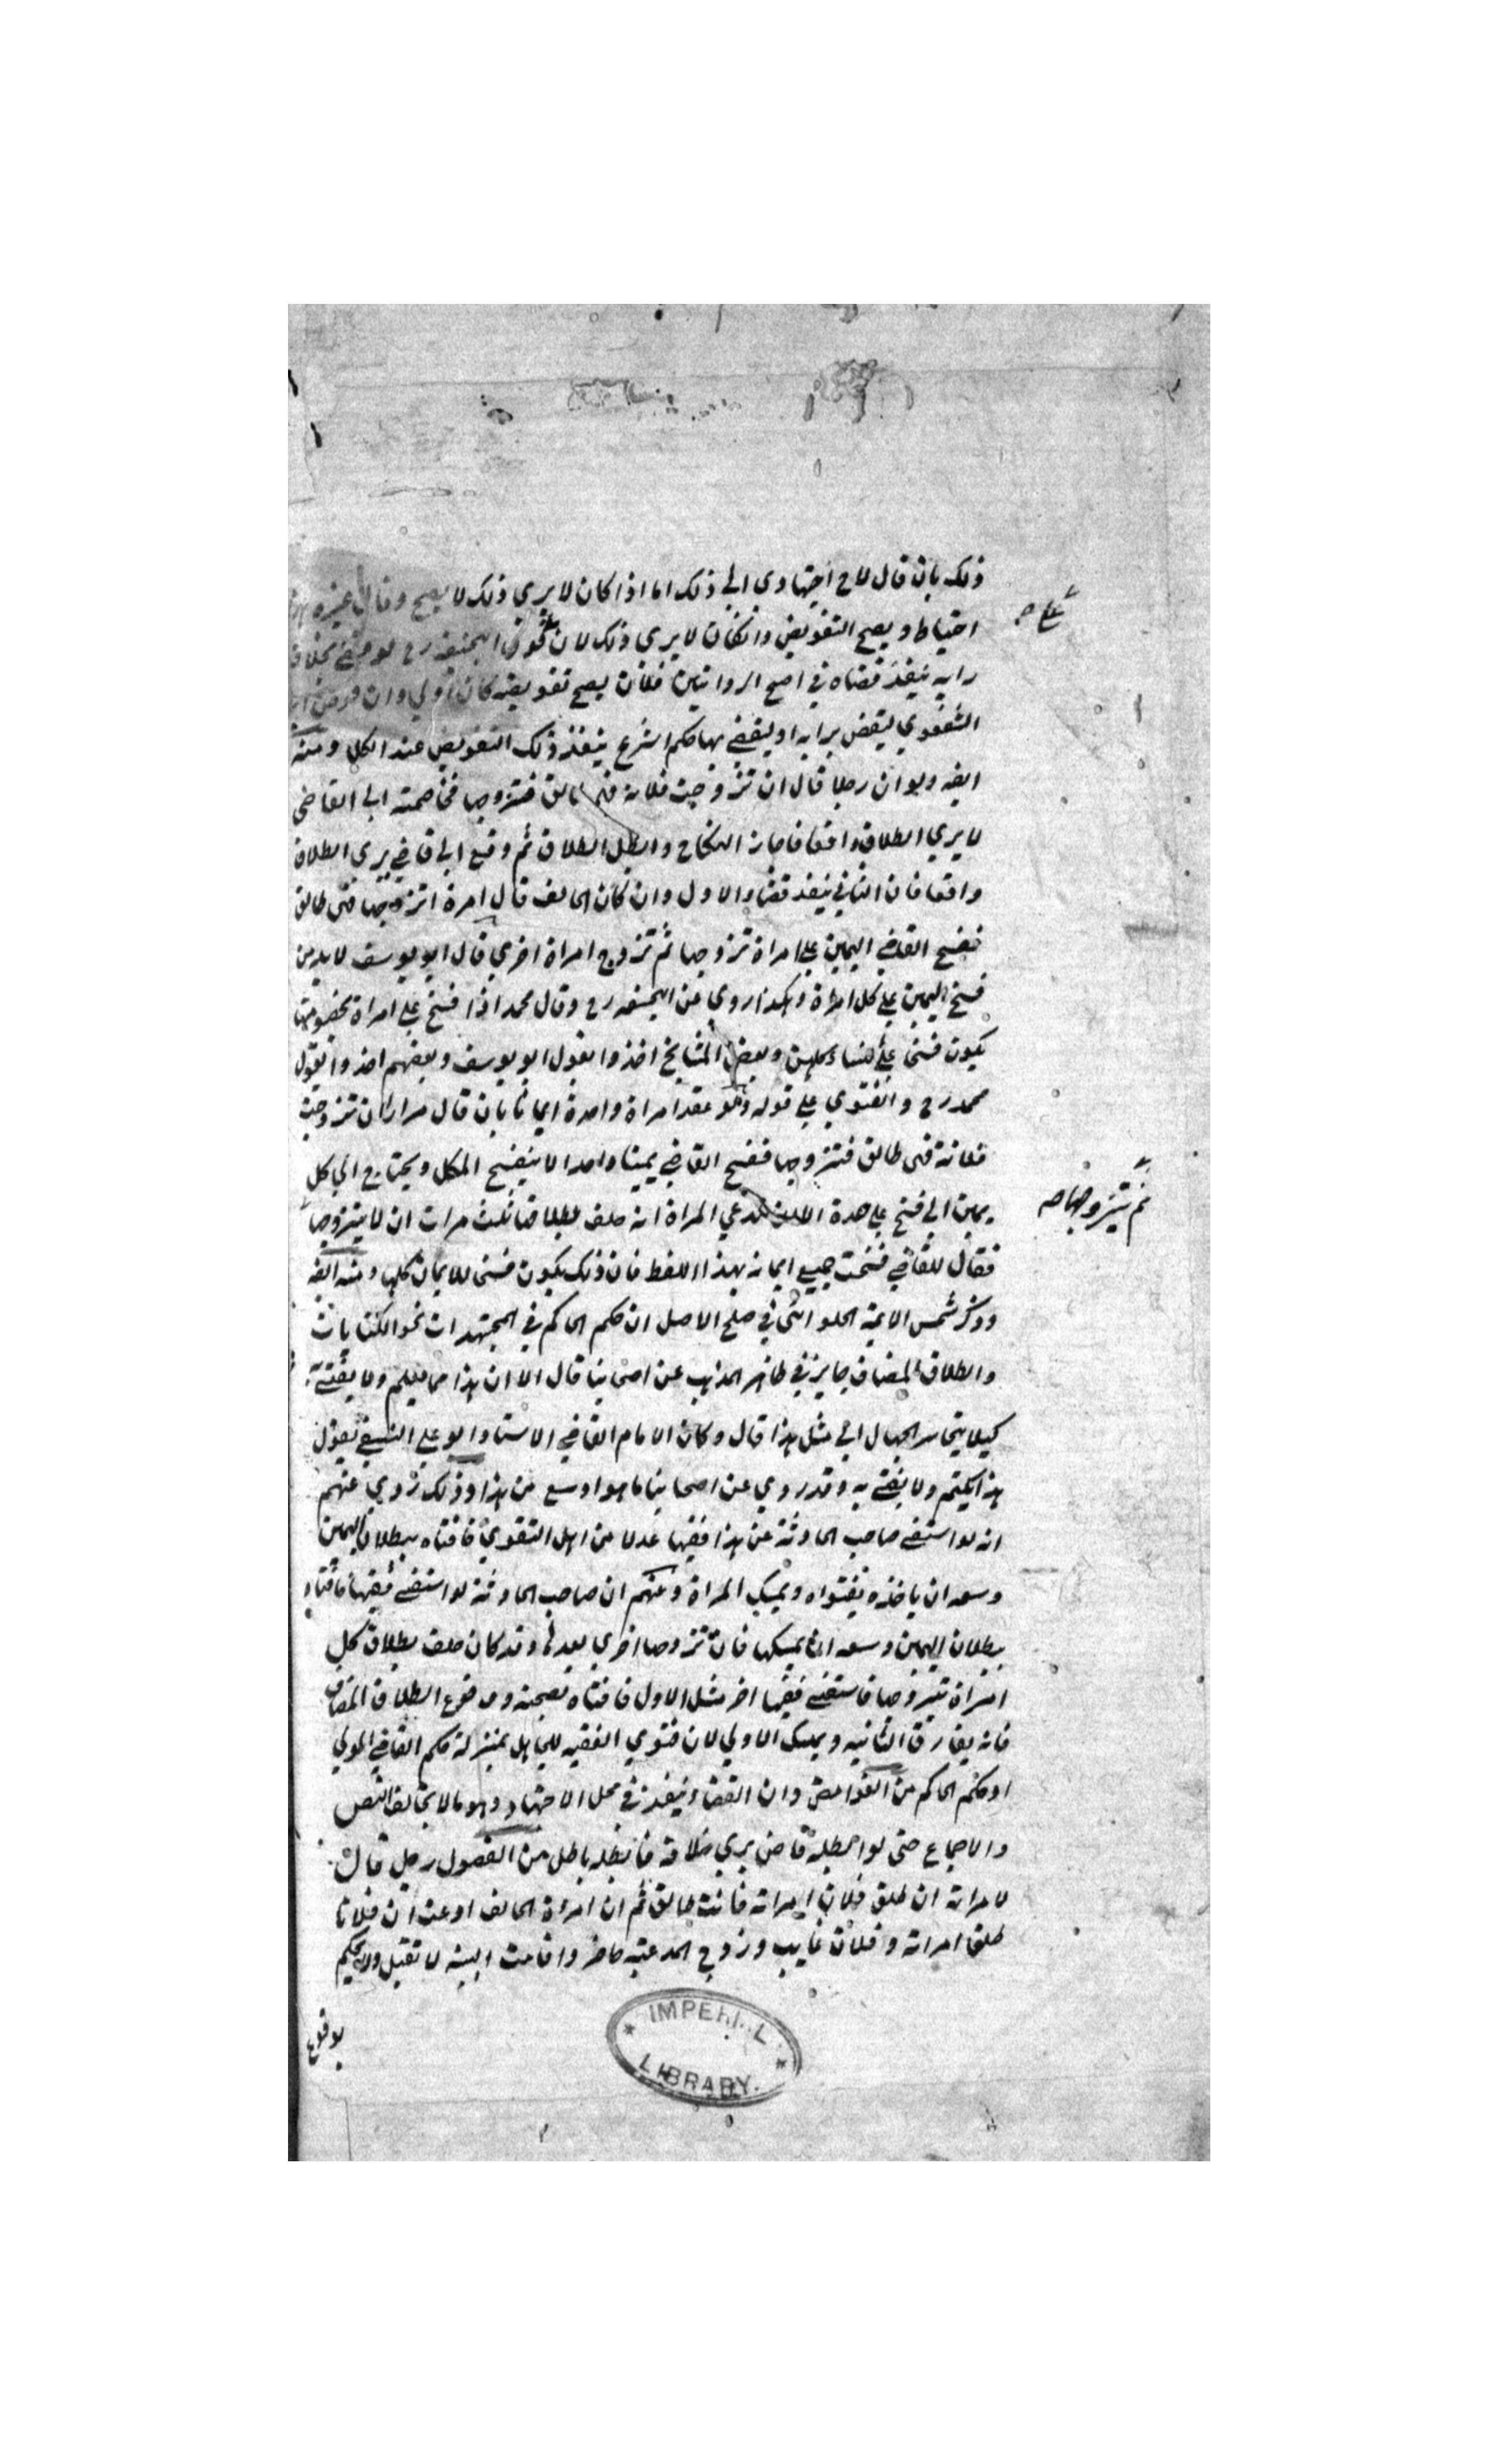 ذلك بان قال لاح اجتهادى الي ذلك اما اذا كان لا يري ذلك لا يصح وقال غيره هذا
احتياط ويصح التفويض وانكان لا يري ذلك لان عند ابيحنيفه رح لو قضي بخلاف
رايه ينفذ قضاه في اصح الروايتين فلان يصح تفويضه كان اولي وان فوض الي
الشفعوي ليقضى برايه او ليقضي بها حكم الشرع ينفذ ذلك التفويض عند الكل ومنه
ايضه ولو ان رجلا قال ان تزوجت فلانة فهى طالق فتزوجها فخاصمته الي القاضي
لا يري الطلاق واقعا فاجاز النكاح وابطل الطلاق ثم وقع الي قاضي يري الطلاق
واقعا فان الثاني ينفذ قضاء الاول وان كان الحالف قال امرة اتزوجها فهى طالق
ففسخ القاضي اليمين علي امراة تزوجها ثم تزوج امراة اخري قال ابو يوسف لا بد من
فسخ اليمين علي كل امراة وهكذا روي عن ابيحنيفه رح وقال محمد اذا فسخ علي امراة بخصومتها
يكون فسخا علي النساء كلهن وبعض المشايخ اخذوا بقول ابو يوسف وبعضهم اخذوا بقول
محمد رح والفتوي علي قوله ولو عقد امراة واحدة ايمانا بان قال مرارا ان تزوجت
فلانة فهى طالق فتزوجها ففسخ القاضي يمينا واحدا لا ينفسخ الكل ويحتاج الي كل
يمين الي فسخ علي حدة تدعي المراة انه حلف بطلاقها ثلث مرات ان لا يتزوجها
فقال القاضي فسخت جميع ايمانه بهذا اللفظ فان ذلك يكون فسخا للايمان كلها ومنه ايضه
وذكر شمس الائمة الحلوانى في صلح الاصل ان حكم الحاكم في المجتهدات نحو الكنايات
والطلاق المضاف جايز في ظاهر المذهب عن اصحابنا قال الا ان هذا مما يعلم ولا يفتي به
كيلا يتجاسر الجهال الي مثل هذا قال وكان الامام القاضي الاستاد ابو علي النسفي يقول
هذا يكتم ولا يفتي به وقد روي عن اصحابنا ما هو اوسع من هذا وذلك روي عنهم
انه لو استفتي صاحب الحادثة عن هذا فقيها عدلا من اهل التقوي فافتاه ببطلان اليمين
وسعه ان ياخذه بفتواه ويمسك المراة وعنهم ان صاحب الحادثة لو استفتي فقيها فافتاه
ببطلان اليمين وسعه ان يمسكها فان تزوجها اخري بعدها وقد كان حلف بطلاق كل
امراة تتزوجها فاستفتي فقيها اخر مثل الاول فافتاه بصحته ووقوع الطلاق المضاف
فانه يفارق الثانيه ويمسك الاولي لان فتوي الفقيه للجاهل بمنزلة حكم القاضي المولي
او حكم الحاكم من الغوامض وان القضاء ينفذ في محل الاجتهاد وهو ما لا يخالف النص
والاجماع حتى لو ابطله قاض يري خلافه فابطله باطل من الفصول رجل قال
لامراته ان طلق فلان امراته فانت طالق ثم ان امراة الحالف ادعت ان فلانا
طلق امراته وفلان غايب وزوج المدعيه حاضر واقامت البينه لا تقبل ولا يحكم
بوقوع
ثم يتزوجها صح
IMPERIAL
LIBRARY.